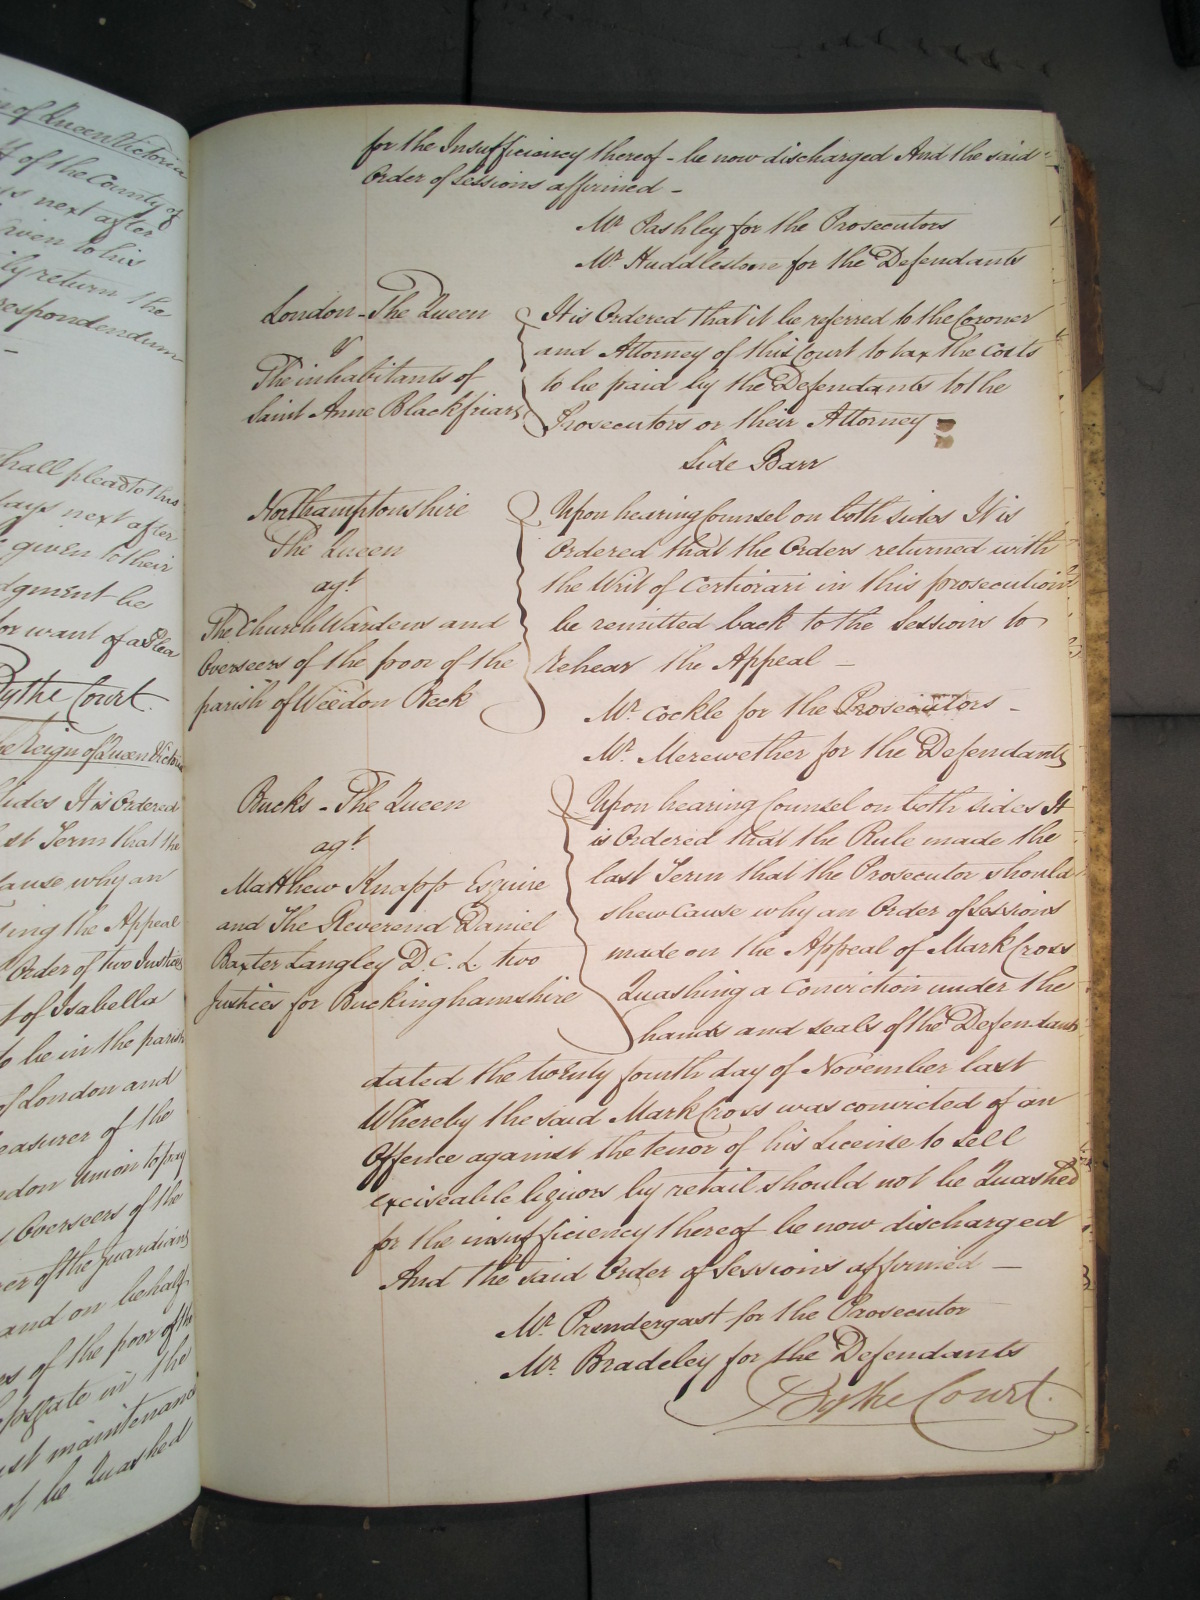 of Queen Victoria
of the County of
next after
given to his
return the
respondendum
shall plead to this
days next after
given to their
Judgment be
for want of a Plea
By the Court.
the Reign of Queen Victoria
sides It is Ordered
last Term that the
cause why an
the Appeal
Order of two Justices
of Isabella
to be in the parish
of London and
Treasurer of the
London Union to pay
Overseers of the
of the guardians
and on behalf
of the poor of the
in the
maintenance
not be Quashed
for the Insufficiency thereof - be now discharged And the said
Order of Sessions affirmed -
Mr. Pashley for the Prosecutors
Mr. Huddlestone for the Defendants
London - The Queen
The inhabitants of
Saint Anne Blackfriars
It is Ordered that it be referred to the Coroner
and Attorney of this Court to tax the Costs
to be paid by the Defendants to the
Prosecutors or their Attorney
Side Barr
Northamptonshire
The Queen
agt
The Church Wardens and
Overseers of the poor of the
parish of Weedon Beck
Upon hearing Counsel on both sides It is
Ordered that the Orders returned with
the Writ of Certiorari in this prosecution
be remitted back to the Sessions to
rehear the Appeal -
Mr. Cockle for the Prosecutors -
Mr. Merewether for the Defendants
Bucks - The Queen
agt
Matthew Knapp Esquire
and The Reverend Daniel
Baxter Langley D.C.L. two
Justices for Buckinghamshire
Upon hearing Counsel on both sides It
is Ordered that the Rule made the
last Term that the Prosecutor should
shew cause why an Order of Sessions
made on the Appeal of Mark Cross
Quashing a Conviction under the
hands and seals of the Defendants
dated the twenty fourth day of November last
Whereby the said Mark Cross was convicted of an
Offence against the tenor of his License to sell
exciseable liquors by retail should not be Quashed
for the insufficiency thereof be now discharged
And the said Order of Sessions affirmed -
Mr. Prendergast for the Prosecutor
Mr. Bradeley for the Defendants
By the Court.